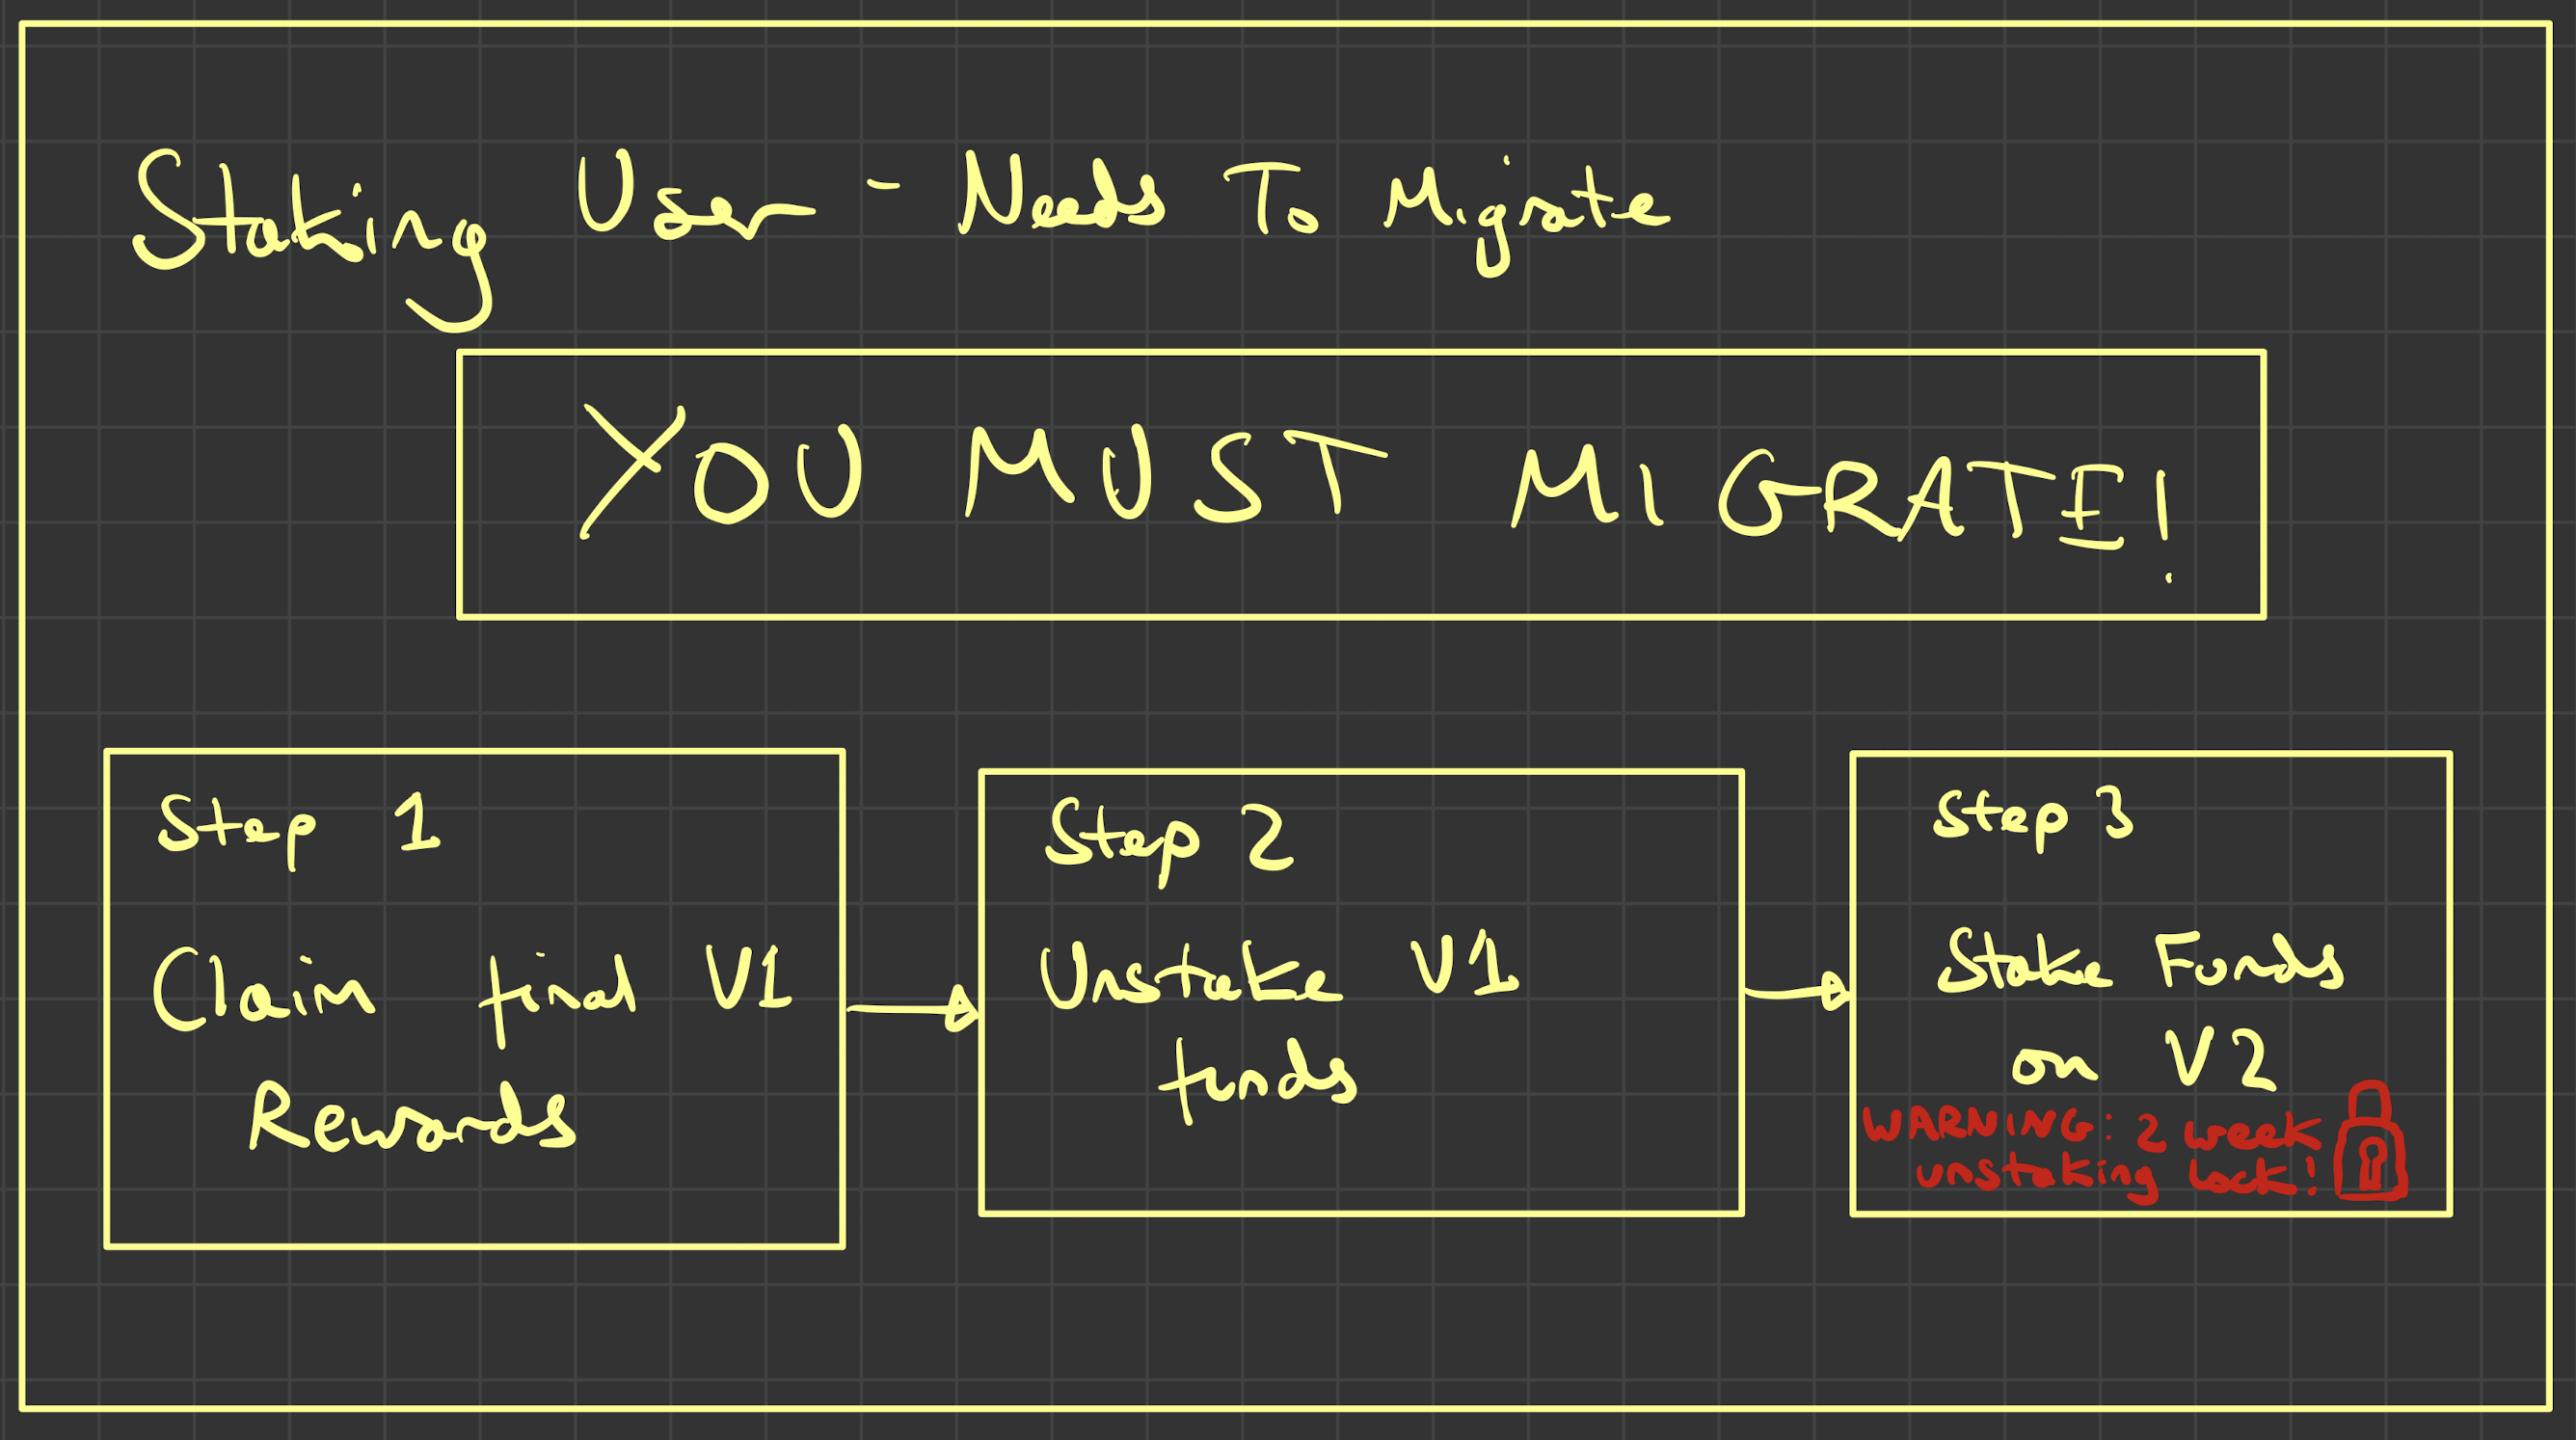 Staking User - Needs To Migrate
YOU MUST MIGRATE!
Step 1
Claim final V1
Rewards
Step 2
Unstake V1
funds
Step 3
Stake Funds
on V2
WARNING: 2 week
unstaking lock!